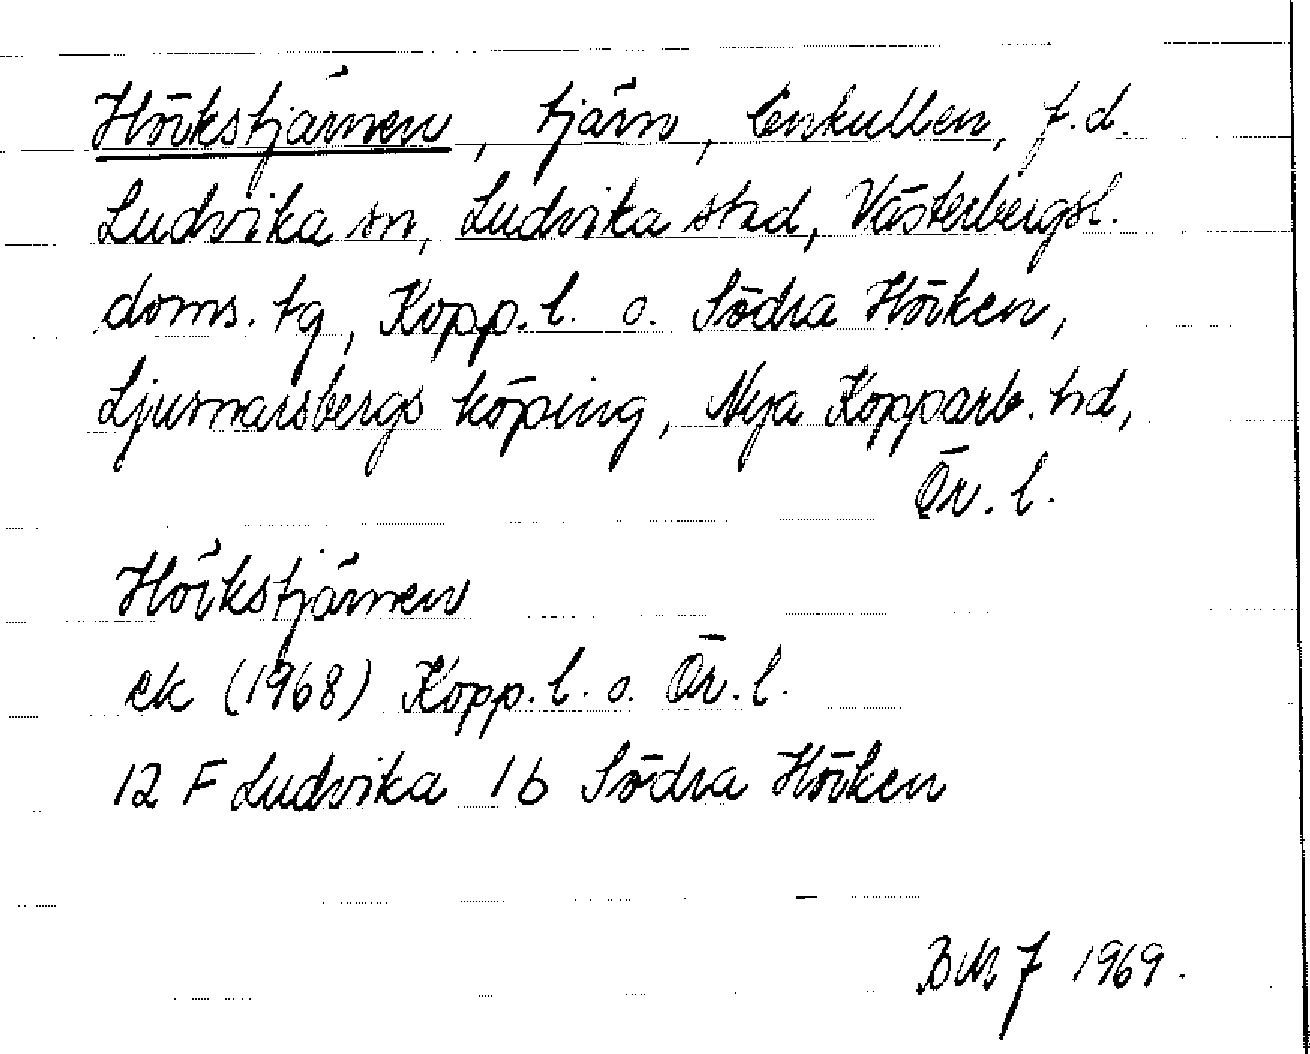 Hörkstjärnen, tjärn, Enkullen, f.d.
Ludvika sn, Ludvika stad, Västerbergsl.
doms. tg, Kopp. l. o. Södra Hörken,
Ljusnarsbergs köping, Nya Kopparb. hd,
Ör. l.
Hörkstjärnen
ek (1968) Kopp. l. o. Ör. l.
12 F Ludvika 1b Södra Hörken
1969.